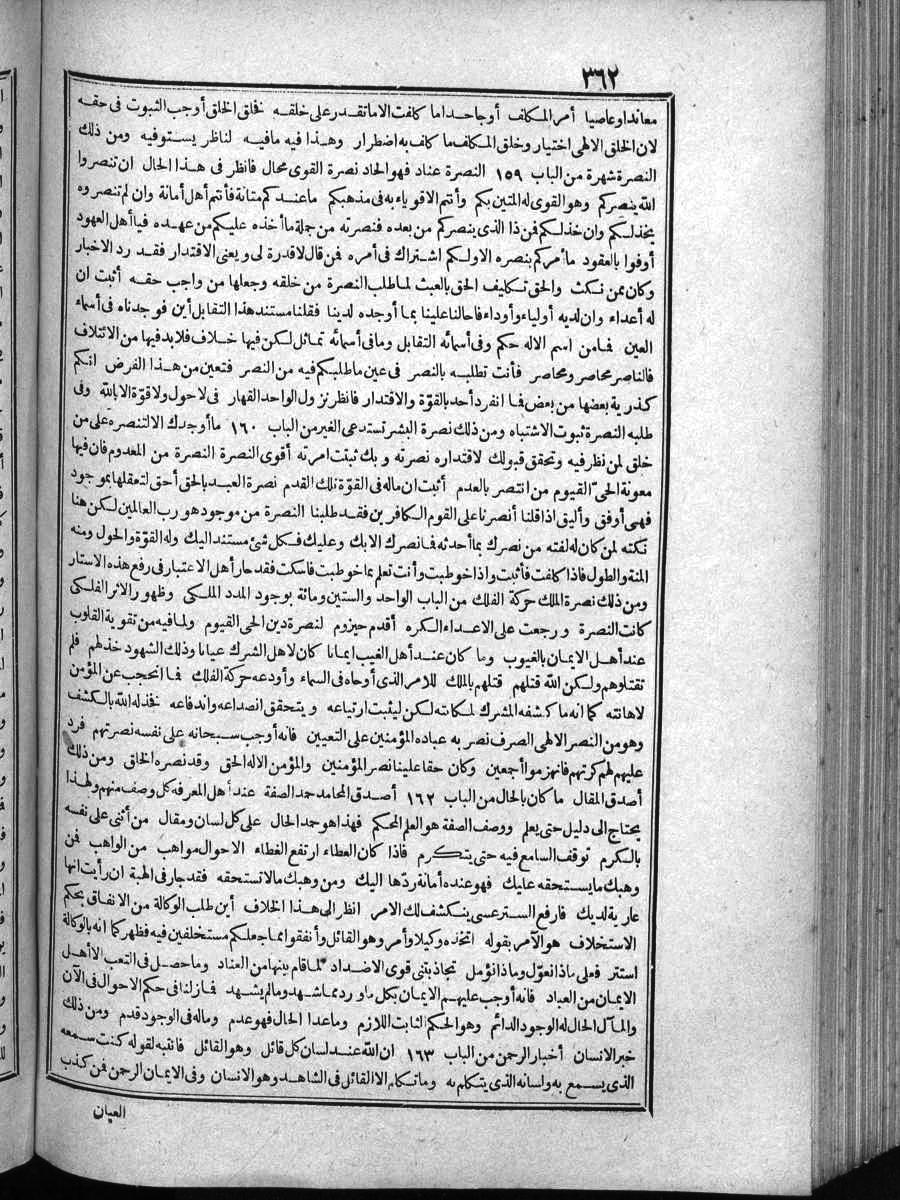 ٣٦٢
معاندا وعاصيا أمر المكلف أوجاحدا ما كلفت الا ما تقدر على خلقه فخلق الخلق أوجب الثبوت فى حقه
لان الخلق الالهى اختيار وخلق المكلف ما كلف به اضطرار وهذا فيه ما فيه لناظر يستوفيه ومن ذلك
النصرة شهرة من الباب ١٥٩ النصرة عناد فهو الحاد نصرة القوى محال فانظر فى هذا الحال ان تنصروا
الله ينصركم وهو القوى له المتين بكم وأنتم الاقوياء به فى مذهبكم ما عندكم متانة فأنتم أهل أمانة وان لم تنصروه
يخذلكم وان خذلكم فمن ذا الذى ينصركم من بعده فنصرته من جملة ما أخذه عليكم من عهده فيا أهل العهود
أوفوا بالعقود ما أمركم بنصره الا ولكم اشتراك فى أمره فمن قال لا قدرة لى ويعنى الاقتدار فقد رد الاخبار
وكان ممن نكث والحق تكليف الحق بالعبث لما طلب النصرة من خلقه وجعلها من واجب حقه أثبت ان
له أعداء وان لديه أولياء وأوداء فاحالنا علينا بما أوجده لدينا فقلنا مستند هذا التقابل أين فوجدناه فى أسماء
العين فما من اسم الاله حكم وفى أسمائه التقابل وما فى أسمائه تماثل لكن فيها خلاف فلا بد فيها من الائتلاف
فالناصر محاصر ومحاصر فأنت تطلبه بالنصر فى عين ما طلبكم فيه من النصر فتعين من هذا الفرض انكم
كذرية بعضها من بعض فما انفرد أحد بالقوة والاقتدار فانظر نزول الواحد القهار فى لا حول ولا قوة الا بالله وفى
طلبه النصرة ثبوت الاشتباه ومن ذلك نصرة البشر تستدعى الغير من الباب ١٦٠ ما أوجدك الا لتنصره على من
خلق لمن نظر فيه وتحقق قبولك لاقتداره نصرته وبك ثبتت امرته أقوى النصرة النصرة من المعدوم فان فيها
معونة الحى القيوم من انتصر بالعدم أثبت ان ماله فى القوة تلك القدم نصرة العبد بالحق أحق لتعقلها بموجود
فهى أوفق وأليق اذا قلنا أنصرنا على القوم الكافرين فقد طلبنا النصرة من موجود هو رب العالمين لكن هنا
نكته لمن كان له لفته من نصرك بما أحدثه فما نصرك الا بك وعليك فكل شئ مستند اليك وله القوة والحول ومنه
المنة والطول فاذا كلفت فأثبت واذا خوطبت وأنت تعلم بما خوطبت فاسكت فقد حار أهل الاعتبار فى رفع هذه الاستار
ومن ذلك نصرة الملك حركة الفلك من الباب الواحد والستين ومائة بوجود المدد الملكى وظهور الاثر الفلكى
كانت النصرة ورجعت على الاعداء الكره أقدم حيزوم لنصرة دين الحى القيوم ولما فيه من تقوية القلوب
عند أهل الايمان بالغيوب وما كان عند أهل الغيب ايمانا كان لاهل الشرك عيانا وذلك الشهود خذلهم فلم
تقتلوهم ولكن الله قتلهم قتلهم بالملك للامر الذى أوحاه فى السماء وأودعه حركة الفلك فما انحجب عن المؤمن
لاهانته كما انه ما كشفه المشرك لمكانته لكن ليثبت ارتياعه ويتحقق انصداعه واندفاعه فخذله الله بالكشف
وهو من النصر الالهى الصرف نصر به عباده المؤمنين على التعيين فانه أوجب سبحانه على نفسه نصرتهم فرد
عليهم لهم كرتهم فانهزموا أجمعين وكان حقا علينا نصر المؤمنين والمؤمن الاله الحق وقد نصره الخلق ومن ذلك
أصدق المقال ما كان بالحال من الباب ١٦٢ أصدق المحامد حمد الصفة عند أهل المعرفه كل وصف منهم ولهذا
يحتاج الى دليل حتى يعلم ووصف الصفة هو العلم المحكم فهذا هو حمد الحال على كل لسان ومقال من أثنى على نفسه
بالكرم توقف السامع فيه حتى يتكرم فاذا كان العطاء ارتفع الغطاء الاحوال مواهب من الواهب فمن
وهبك ما يستحقه عليك فهو عنده أمانة ردها اليك ومن وهبك ما لا تستحقه فقد جار فى الهبة ان رأيت انها
عارية لديك فارفع الستر عسى ينكشف لك الامر انظر الى هذا الخلاف أين طلب الوكالة من الانفاق بحكم
الاستخلاف هو الآمر بقوله اتخذه وكيلا وأمر وهو القائل وأنفقوا مما جعلكم مستخلفين فيه فظهر كما انه بالوكالة
استتر فعلى ماذا نعول وماذا نؤمل تجاذبتنى قوى الاضداد لما قام بينها من العناد وما حصل فى التعب الا أهل
الايمان من العباد فانه أوجب عليهم الايمان بكل ما ورد مما شهد وما لم يشهد فما زلنا فى حكم الاحوال فى الآن
والمآل الحال له الوجود الدائم وهو الحكم الثابت اللازم وما عدا الحال فهو عدم وماله فى الوجود قدم ومن ذلك
خبر الانسان أخبار الرحمن من الباب ١٦٣ ان الله عند لسان كل قائل وهو القائل فانتبه لقوله كنت سمعه
الذى يسمع به ولسانه الذى يتكلم به وما تكلم الا القائل فى الشاهد وهو الانسان وفى الايمان الرحمن فمن كذب
العيان